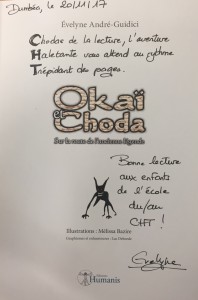 Dumbéa, le 20/11/17
Évelyne André-Guidici
Chodas de la lecture, l'aventure
Haletante vous attend au rythme
Trépidant des pages.
Okaï
et Choda
Sur la route de l'ancienne légende
Bonne lecture
aux enfants
de l'École
du/au
CHT !
Illustrations : Mélissa Bazire
Graphismes et colorisations : Luc Deborde
Evelyne
Éditions
Humanis